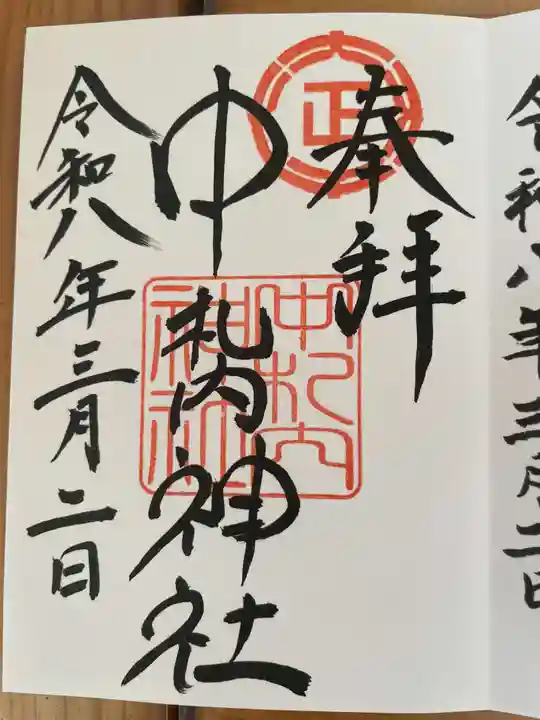 令和八年三月二日
奉拝
正
中札内神社
中札内
神社
令和八年三月二日